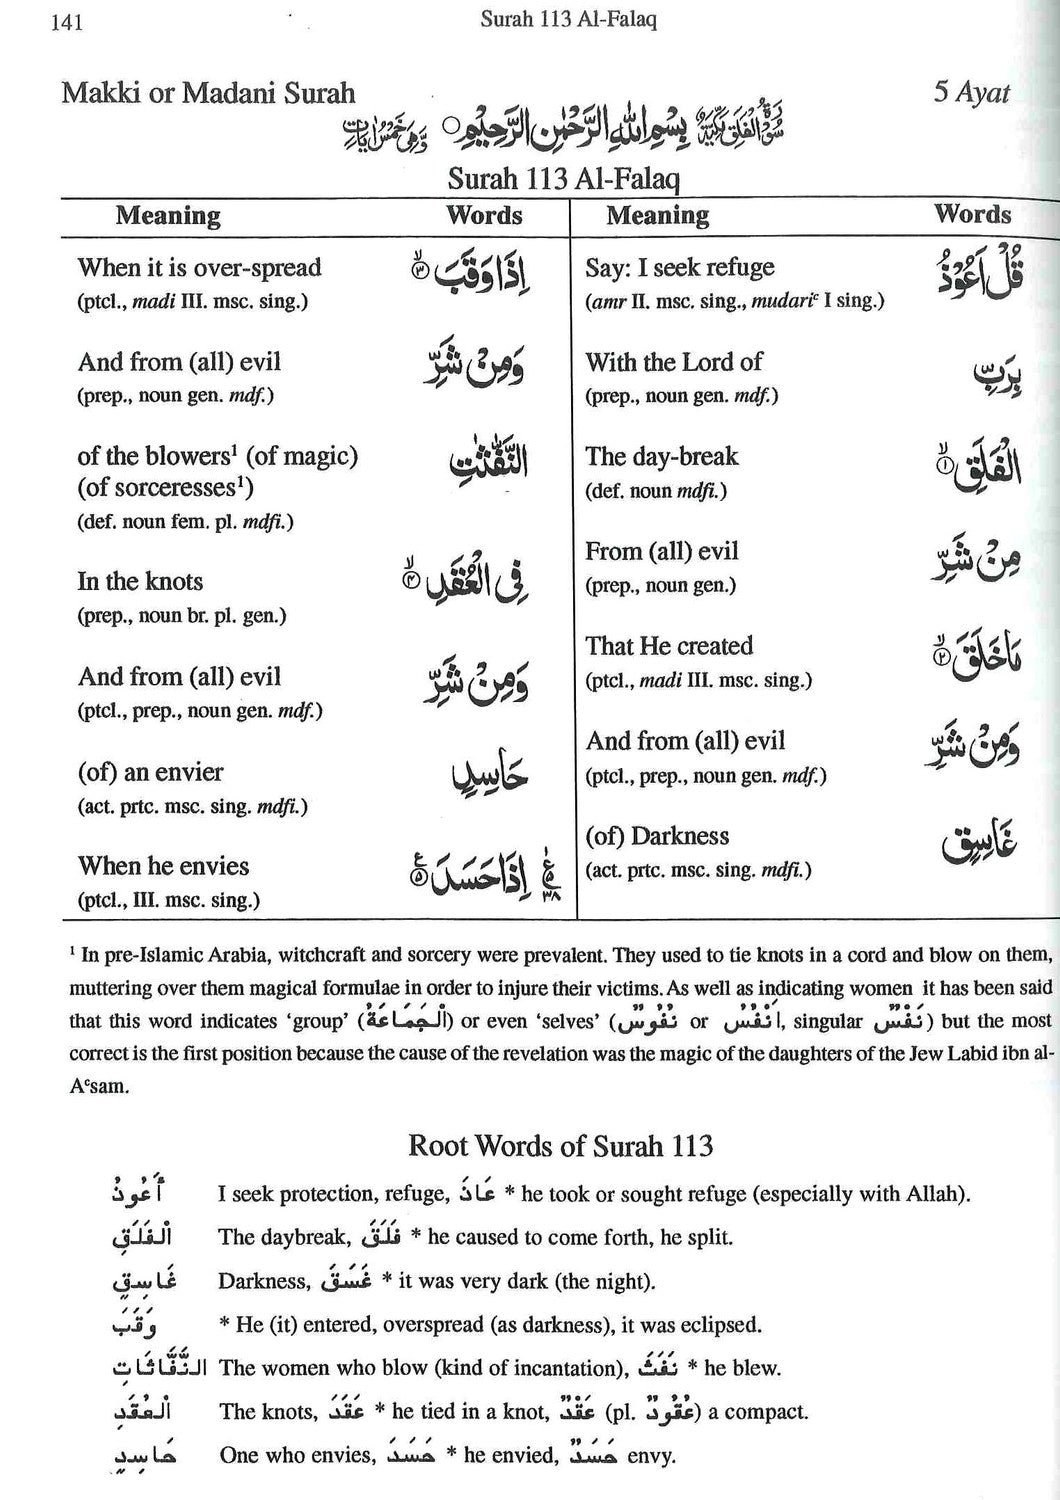 141
Surah 113 Al-Falaq
Makki or Madani Surah
5 Ayat
سُوْرَةُ الْفَلَقِ مَكِّيَّةٌ بِسْمِ اللّٰهِ الرَّحْمٰنِ الرَّحِيْمِ ○ وَهِيَ خَمْسُ اٰيَاتٍ
Surah 113 Al-Falaq
Meaning Words Meaning Words
Say: I seek refuge قُلْ اَعُوْذُ
(amr II. msc. sing., mudariᶜ I sing.)
With the Lord of بِرَبِّ
(prep., noun gen. mdf.)
The day-break الْفَلَقِ ۙ﴿۱﴾
(def. noun mdfi.)
From (all) evil مِنْ شَرِّ
(prep., noun gen.)
That He created مَا خَلَقَ ۙ﴿۲﴾
(ptcl., madi III. msc. sing.)
And from (all) evil وَمِنْ شَرِّ
(ptcl., prep., noun gen. mdf.)
(of) Darkness غَاسِقٍ
(act. prtc. msc. sing. mdfi.)
When it is over-spread اِذَا وَقَبَ ۙ﴿۳﴾
(ptcl., madi III. msc. sing.)
And from (all) evil وَمِنْ شَرِّ
(prep., noun gen. mdf.)
of the blowers¹ (of magic) النَّفّٰثٰتِ
(of sorceresses¹)
(def. noun fem. pl. mdfi.)
In the knots فِي الْعُقَدِ ۙ﴿۴﴾
(prep., noun br. pl. gen.)
And from (all) evil وَمِنْ شَرِّ
(ptcl., prep., noun gen. mdf.)
(of) an envier حَاسِدٍ
(act. prtc. msc. sing. mdfi.)
When he envies اِذَا حَسَدَ ﴿۵﴾ ع ۵ ۳۸
(ptcl., III. msc. sing.)
¹ In pre-Islamic Arabia, witchcraft and sorcery were prevalent. They used to tie knots in a cord and blow on them,
muttering over them magical formulae in order to injure their victims. As well as indicating women it has been said
that this word indicates ‘group’ (اَلْجَمَاعَةُ) or even ‘selves’ (نُفُوْسٌ or اَنْفُسٌ, singular نَفْسٌ) but the most
correct is the first position because the cause of the revelation was the magic of the daughters of the Jew Labid ibn al-
Aᶜsam.
Root Words of Surah 113
أَعُوذُ I seek protection, refuge, عَاذَ * he took or sought refuge (especially with Allah).
الْفَلَقِ The daybreak, فَلَقَ * he caused to come forth, he split.
غَاسِقٍ Darkness, غَسَقَ * it was very dark (the night).
وَقَبَ * He (it) entered, overspread (as darkness), it was eclipsed.
النَّفَّاثَاتِ The women who blow (kind of incantation), نَفَثَ * he blew.
الْعُقَدِ The knots, عَقَدَ * he tied in a knot, عَقْدٌ (pl. عُقُودٌ) a compact.
حَاسِدٍ One who envies, حَسَدَ * he envied, حَسَدٌ envy.